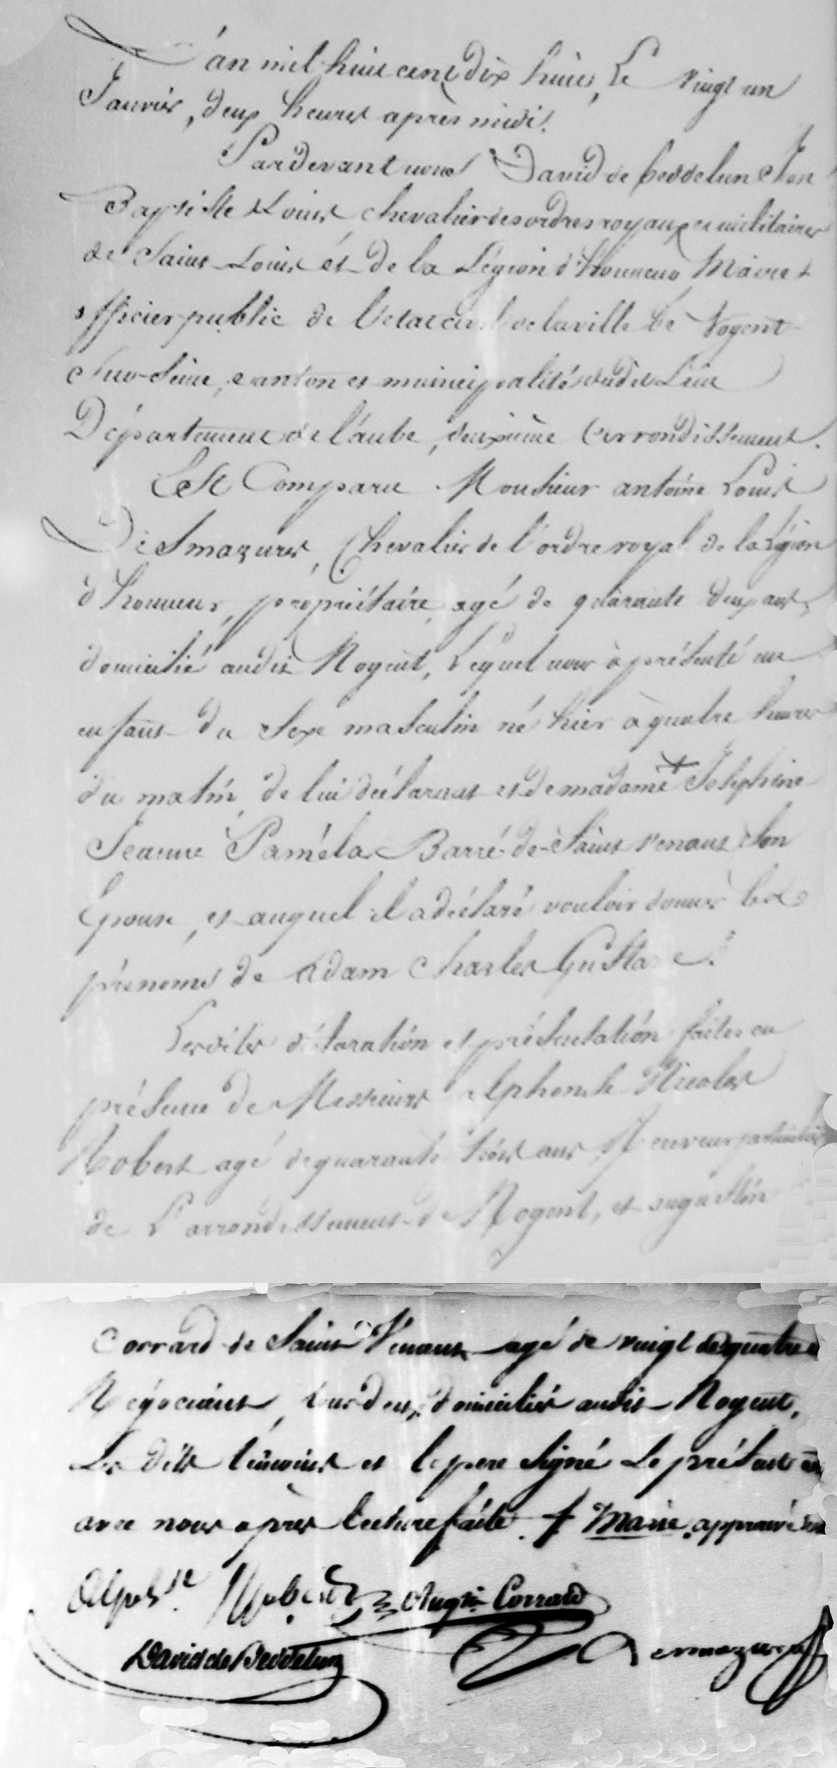 L'an mil huit cent dix huit, Le vingt un
Janvier, deux heures après midi.
Pardevant nous David de Beddelun Jean
Baptiste Louis, chevalier des ordres royaux et militaires
de Saint Louis et de la Légion d'Honneur, Maire et
officier public de l'état civil de la ville de Nogent
Sur Seine, canton et municipalité dudit Lieu
Département de l'aube, deuxième arrondissement.
Est Comparu Monsieur antoine Louis
Desmazures, Chevalier de l'ordre royal de la Légion
d'honneur, propriétaire, agé de quarante deux ans,
domicilié audit Nogent, Lequel nous à présenté un
enfant du sexe masculin né hier à quatre heures
du matin, de lui déclarant et de madame + Joséphine
Jeanne Paméla Barré de Saint Venant Son
Epouse, et auquel il a déclaré vouloir donner les
prénoms de Adam Charles Gustave.
Lesdites déclaration et présentation faites en
présence de Messieurs alphonse Nicolas
Robert agé de quarante trois ans, Receveur particulier
de L'arrondissement de Nogent, et augustin
Corrard de Saint Venant agé de vingt quatre
Négociant, tous deux domiciliés audit Nogent,
Les dits témoins et le pere Signé Le présent
avec nous après lecture faite. + Marie, approuvé
Alph.se Robert Aug.in Corrard
David de Beddelun Desmazures